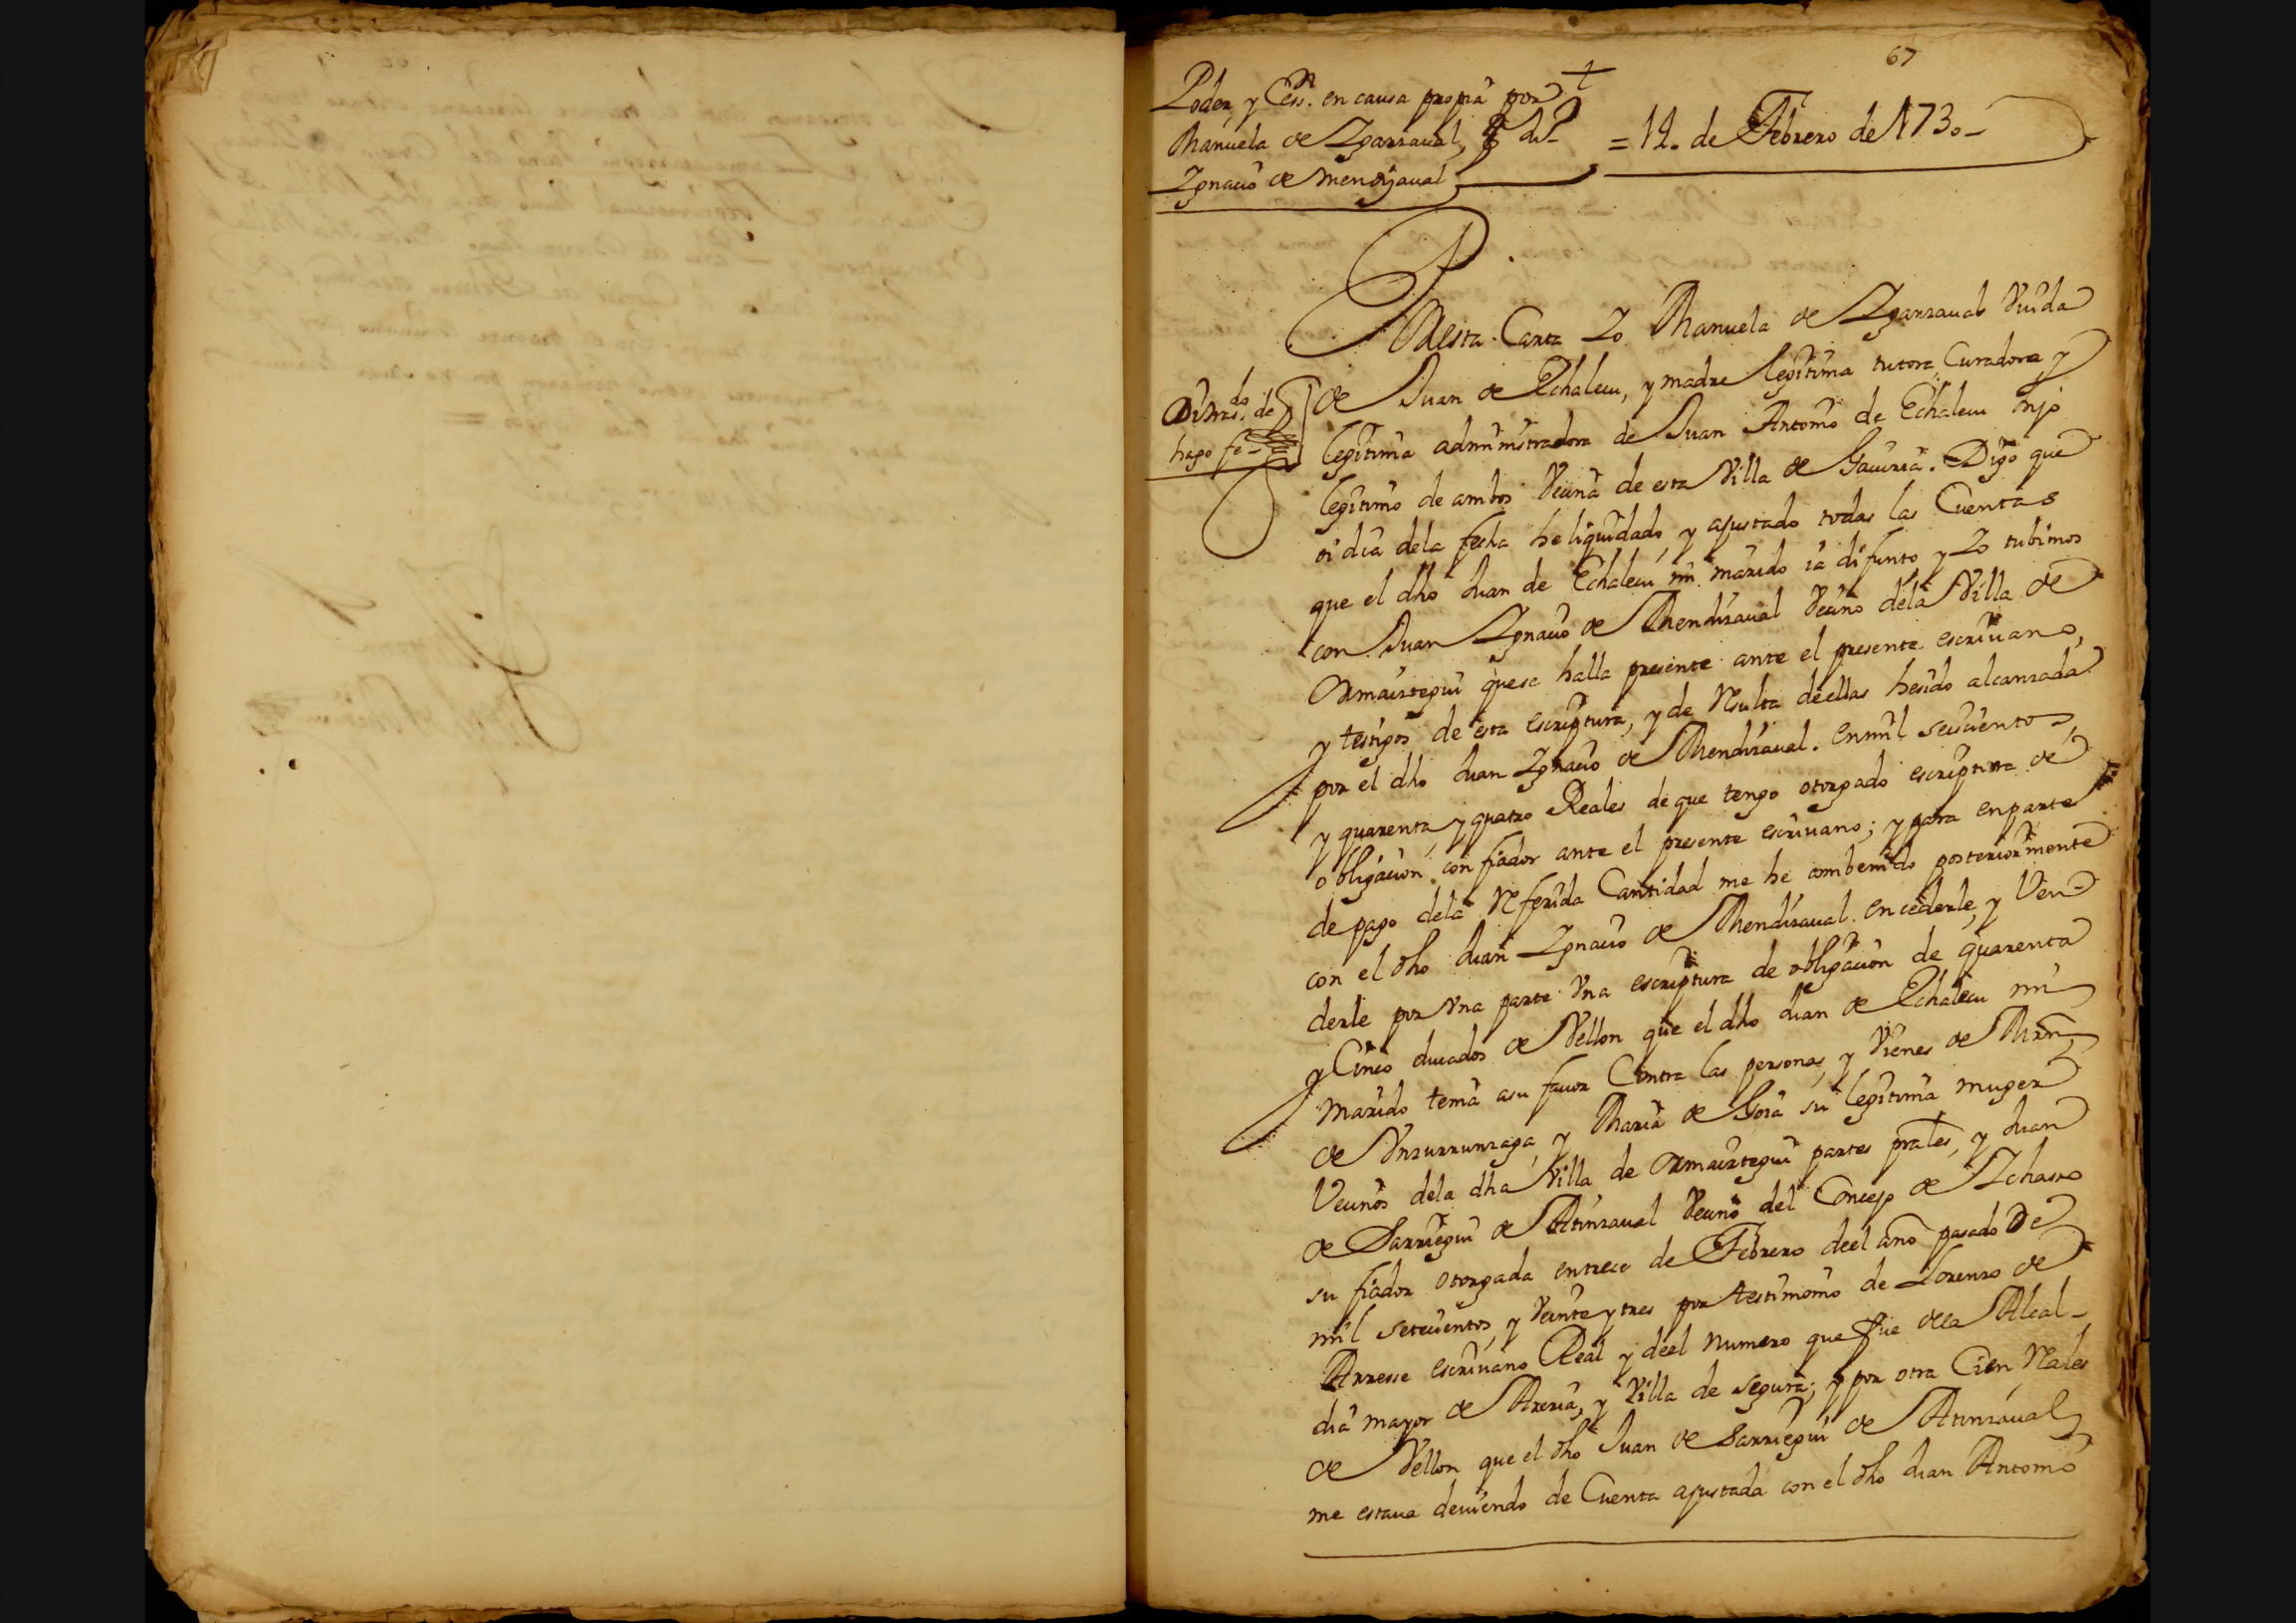 67
Poder, y Cess.n en causa propia por
Manuela de Ygarzaual, a Ju.o
Ygnacio de Mendizaual
= 12. de Febrero de 1730 –
P
Desta Carta Yo Manuela de Ygarzaual Viuda
de Juan de Echalecu, y madre legitima tutora Curadora, y
legitima administradora de Juan Antonio de Echalecu hijo
legitimo de ambos Vecina de esta Villa de Gauiria. Digo que
oi dia dela fecha he liquidado, y ajustado todas las Cuentas
que el dho Juan de Echalecu mi marido ia difunto y Yo tubimos
con Juan Ygnacio de Mendizaual Vecino dela Villa de
Ormaiztegui quese halla presente ante el presente escriuano,
y testigos de esta escriptura, y de Resulta deellas hesido alcanzada
por el dho Juan Ygnacio de Mendizaual. enmil seiscientos,
y quarenta, y quatro Reales deque tengo otorgado escriptura de
obligacion con fiador ante el presente escriuano; y para enparte
de pago dela Referida Cantidad me he combenido posteriormente
con el dho Juan Ygnacio de Mendizaual. encederle, y Ven-
derle por Vna parte Vna escriptura de obligacion de quarenta
y Cinco ducados de Vellon que el dho Juan de Echalecu mi
marido tenia asu fauor Contra las personas, y Vienes de Mrn
de Vnzurrunzaga, y Maria de Goia su legitima muger
Vecinos dela dha Villa de Ormaiztegui partes prales, y Juan
de Sarriegui de Atinzaual Vecino del Concejo de Ychasso
su fiador otorgada entrece de Febrero deel año pasado De
mil setecientos, y Veinte y tres por testimonio de Lorenzo de
Arresse escriuano Real y deel numero que fue dela Alcal-
dia mayor de Areria, y Villa de Segura; y por otra Cien Reales
de Vellon que el dho Juan de Sarriegui de Atinzaual
me estaua deuiendo de Cuenta ajustada con el dho Juan Antonio
do
de
hago fe –